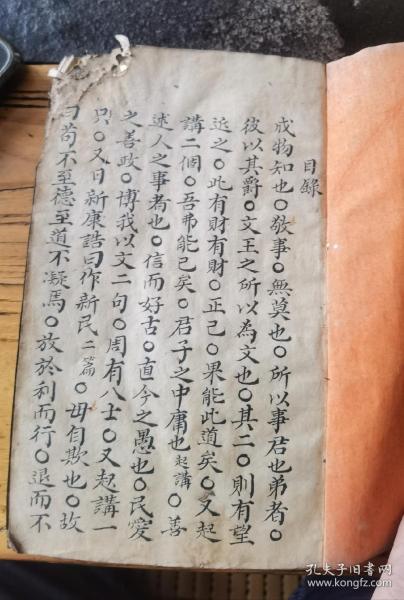 目錄
成物知也〇敬事〇無莫也〇所以事君也弟者〇
彼以其爵〇文王之所以為文也〇其二〇則有望
近之〇此有財有財〇正己〇果能此道矣〇又起
講二個〇吾弗能已矣〇君子之中庸也起講〇善
述人之事者也〇信而好古〇直今之愚也〇民愛
之善政〇博我以文二句〇周有八士〇又起講一
只〇又日新康誥曰作新民二篇〇毋自欺也〇故
曰苟不至德至道不凝焉〇放於利而行〇退而不
孔夫子旧书网
www.kongfz.com